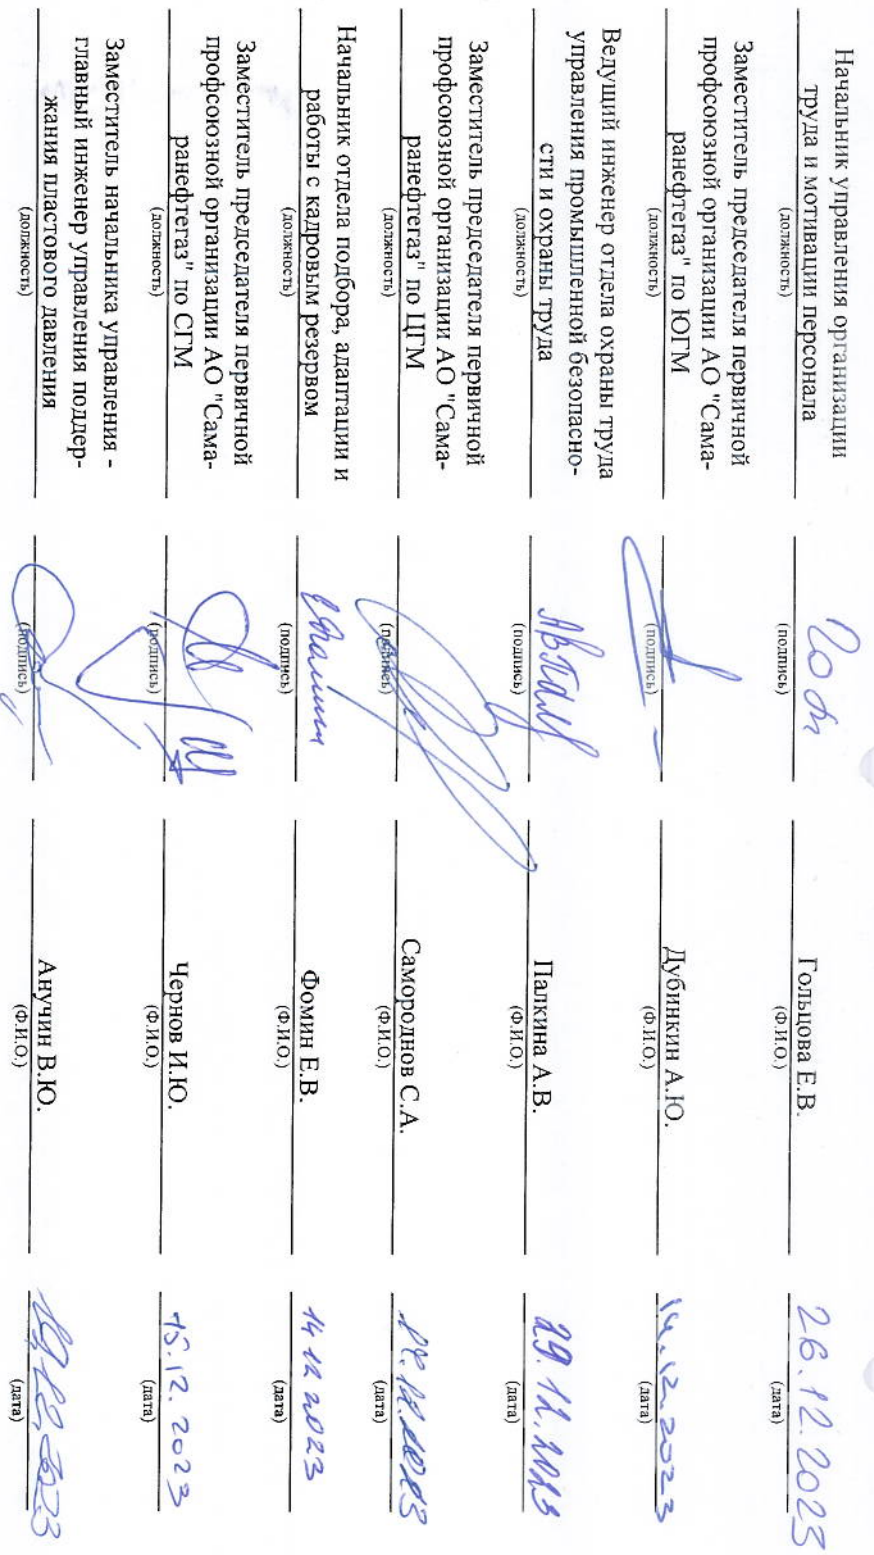 Начальник управления организации
труда и мотивации персонала
(должность) (подпись) Гольцова Е.В. (Ф.И.О.) 26.12.2023 (дата)
Заместитель председателя первичной
профсоюзной организации АО "Сама-
ранефтегаз" по ЮГМ
(должность) (подпись) Дубинкин А.Ю. (Ф.И.О.) 14.12.2023 (дата)
Ведущий инженер отдела охраны труда
управления промышленной безопасно-
сти и охраны труда
(должность) (подпись) Палкина А.В. (Ф.И.О.) 29.12.2023 (дата)
Заместитель председателя первичной
профсоюзной организации АО "Сама-
ранефтегаз" по ЦГМ
(должность) (подпись) Самороднов С.А. (Ф.И.О.) (дата)
Начальник отдела подбора, адаптации и
работы с кадровым резервом
(должность) (подпись) Фомин Е.В. (Ф.И.О.) 14 12 2023 (дата)
Заместитель председателя первичной
профсоюзной организации АО "Сама-
ранефтегаз" по СГМ
(должность) (подпись) Чернов И.Ю. (Ф.И.О.) 15.12.2023 (дата)
Заместитель начальника управления -
главный инженер управления поддер-
жания пластового давления
(должность) (подпись) Анучин В.Ю. (Ф.И.О.) (дата)